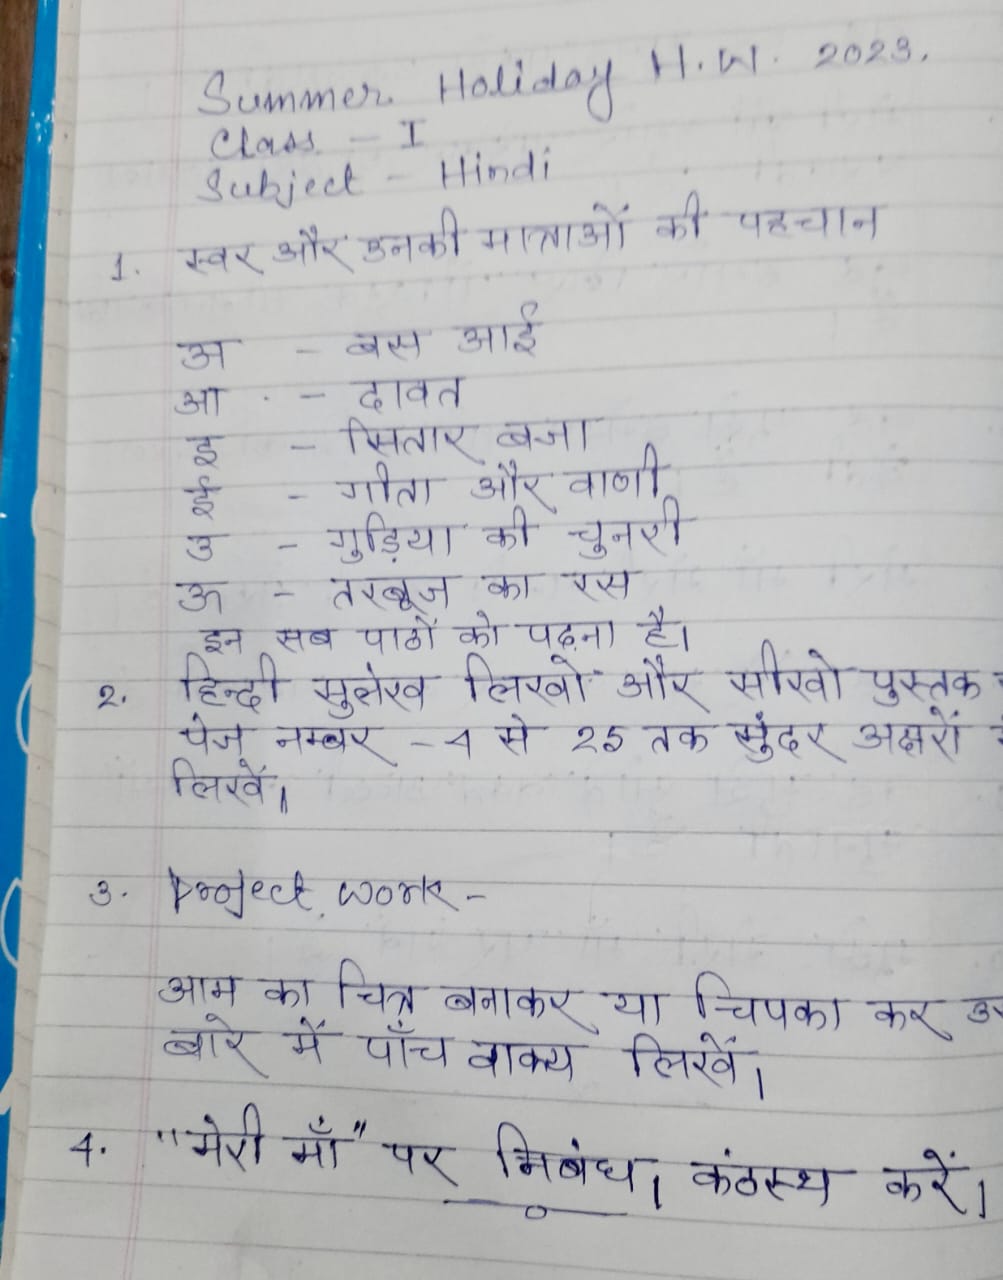 Summer Holiday H.W. 2023.
Class - I
Subject - Hindi
1. स्वर और उनकी मात्राओं की पहचान
अ - बस आई
आ - दावत
इ - सितार बजा
ई - गीता और वाणी
उ - गुड़िया की चुनरी
ऊ - तरबूज का रस
इन सब पाठों को पढ़ना है।
2. हिन्दी सुलेख लिखो और सीखो पुस्तक
पेज नम्बर - 4 से 25 तक सुंदर अक्षरों
लिखें।
3. Project work -
आम का चित्र बनाकर या चिपका कर
बारे में पाँच वाक्य लिखें।
4. "मेरी माँ" पर निबंध। कंठस्थ करें।